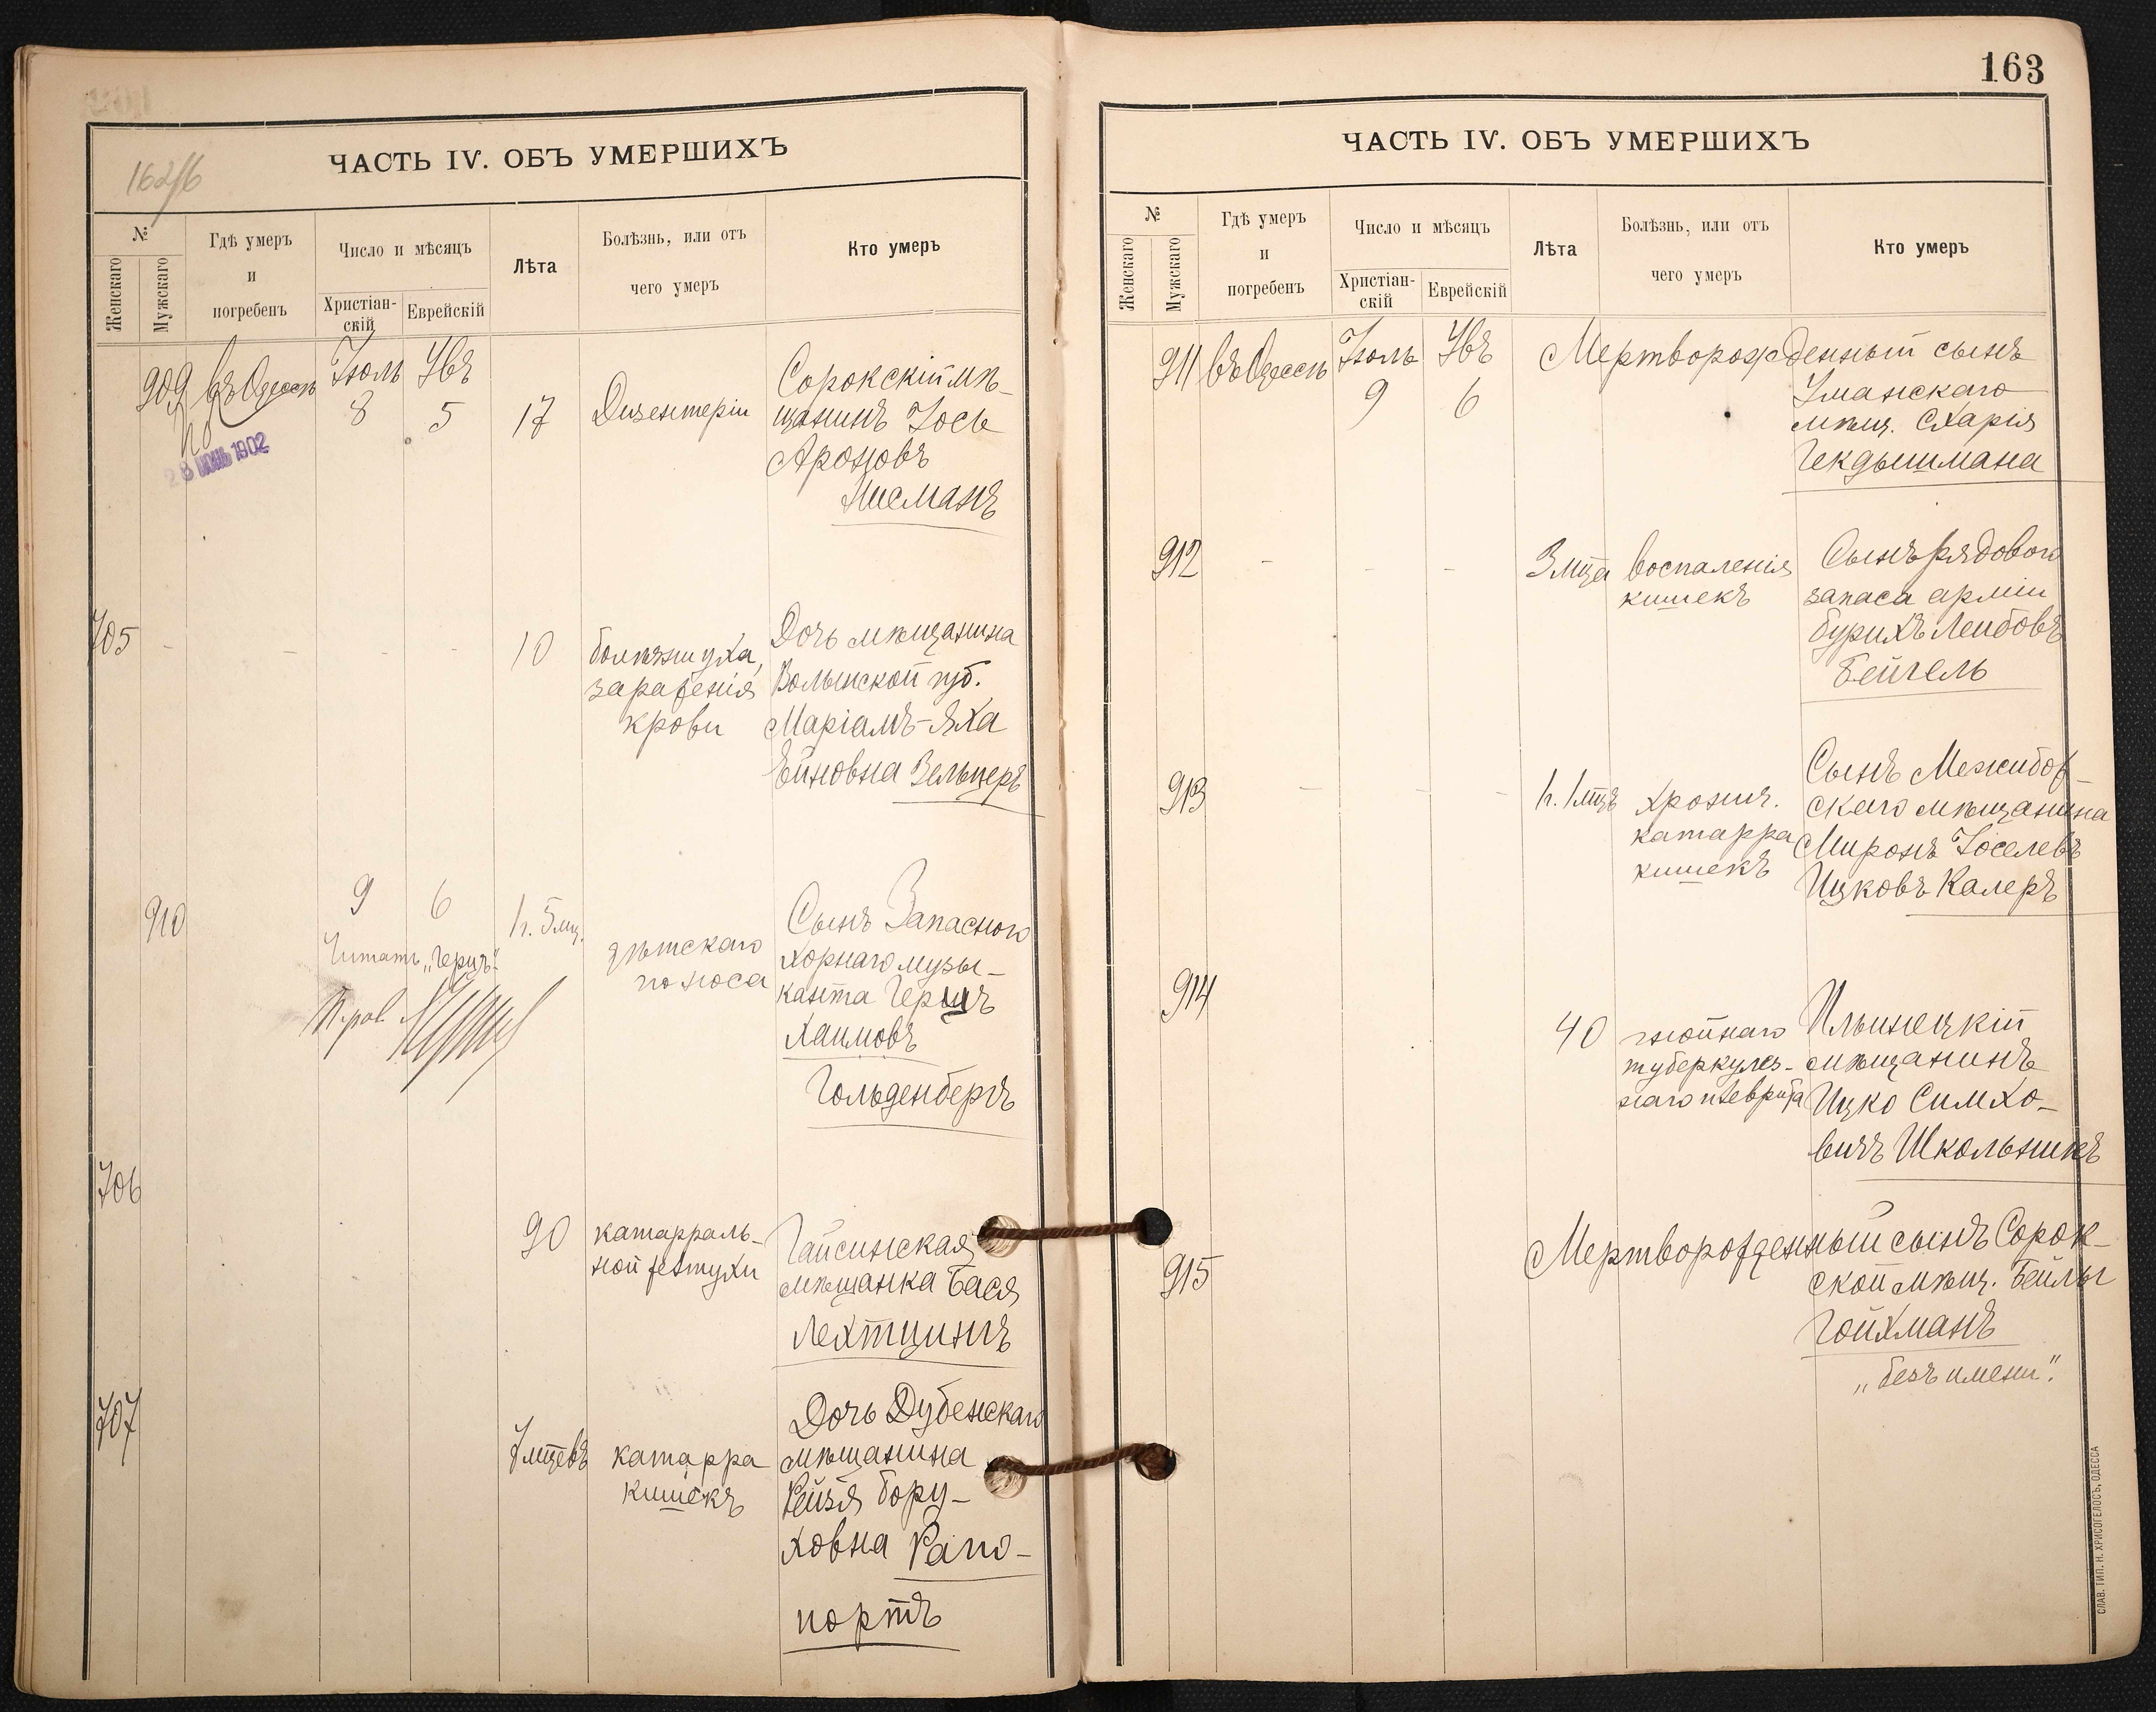 162/б
ЧАСТЬ IV. ОБЪ УМЕРШИХЪ
№
Женскаго
Мужскаго
Гдѣ умеръ
и
погребенъ
Число и мѣсяцъ
Христіан-
скій
Еврейскій
Лѣта
Болѣзнь, или отъ
чего умеръ
Кто умеръ
909 въ Одессѣ Іюль 8 Увъ 5 17 Дизентеріи
Сорокскій мѣ-
щанинъ Іось
Ароновъ
Нисманъ
28 ІЮНЬ 1902
705 - - - - 10
зараженія
крови
Дочь мѣщанина
Волынской губ.
Маріамъ-Яха
Ейновна Зельцеръ
910 9 6 1 г. 5 мц.
дѣтскаго
поноса
Сынъ Запасного
хорнаго музы-
канта Герцъ
Хаимовъ
Гольденбергъ
Читать „Герцъ“
706 90
катарраль-
ной желтухи
Гайсинская
мѣщанка Бася
707 7 мцевъ
катарра
кишекъ
Дочь Дубенскаго
мѣщанина
Рейзя Бору-
ховна Рапо-
портъ
163
ЧАСТЬ IV. ОБЪ УМЕРШИХЪ
№
Женскаго
Мужскаго
Гдѣ умеръ
и
погребенъ
Число и мѣсяцъ
Христіан-
скій
Еврейскій
Лѣта
Болѣзнь, или отъ
чего умеръ
Кто умеръ
911 въ Одессѣ Іюль 9 Увъ 6
Мертворожденный сынъ
Уманскаго
мѣщ. Схарія
Гекдышмана
912 - - - 3 мца
воспаленія
кишекъ
Сынъ рядового
запаса арміи
Бурихъ Лейбовъ
Бейгель
913 - - - 1 г. 1 мцъ
хронич.
катарра
кишекъ
Сынъ Межибож-
скаго мѣщанина
Миронъ Іоселевъ
Ицковъ Калеръ
914 40
гнойнаго
туберкулез-
наго плеврита
Ильинецкій
мѣщанинъ
Ицко Симхо-
вичъ Школьникъ
915
Мертворожденный сынъ Сорок-
ской мѣщ. Бейлы
Гойхманъ
„безъ имени“.
СЛАВ. ТИП. Н. ХРИСОГЕЛОСЪ, ОДЕССА